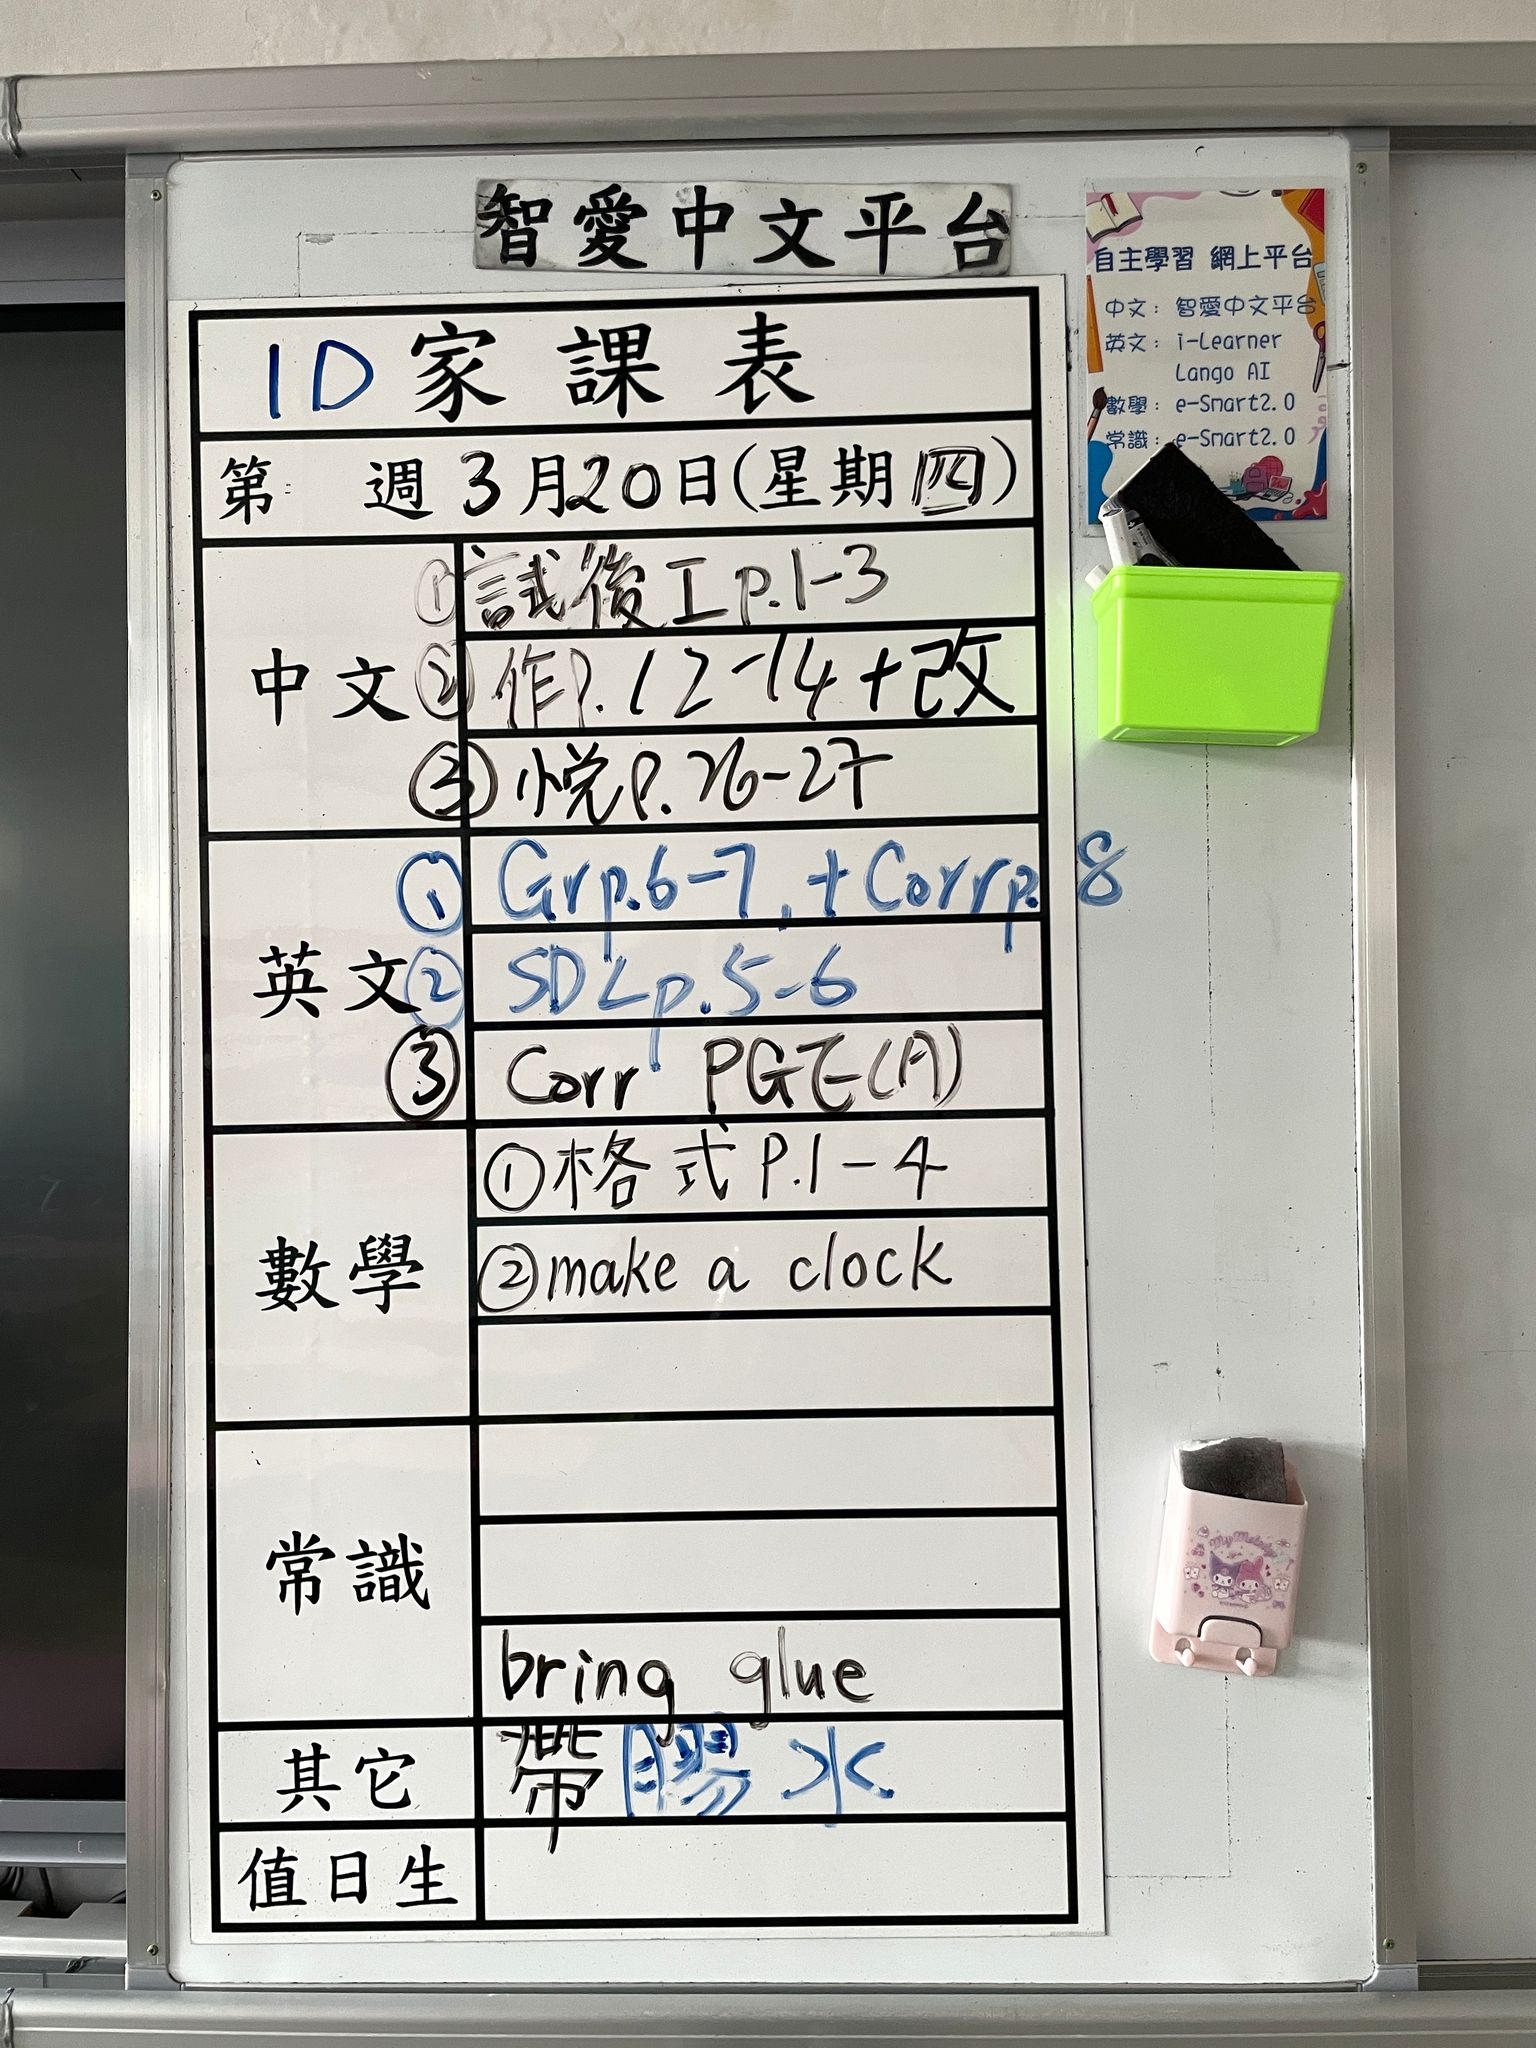 智愛中文平台
自主學習 網上平台
中文：智愛中文平台
英文：i-Learner
Lango AI
數學：e-Smart2.0
常識：e-Smart2.0
1D 家課表
第 週 3月20日(星期四)
中文
①試後工p.1-3
②作P.12-14+改
③悅P.26-27
英文
① Gr p.6-7, + Corr p. 8
② SDL p.5-6
③ Corr PGE(A)
數學
①格式P.1-4
②make a clock
常識
bring glue
其它
帶膠水
值日生
My Melody